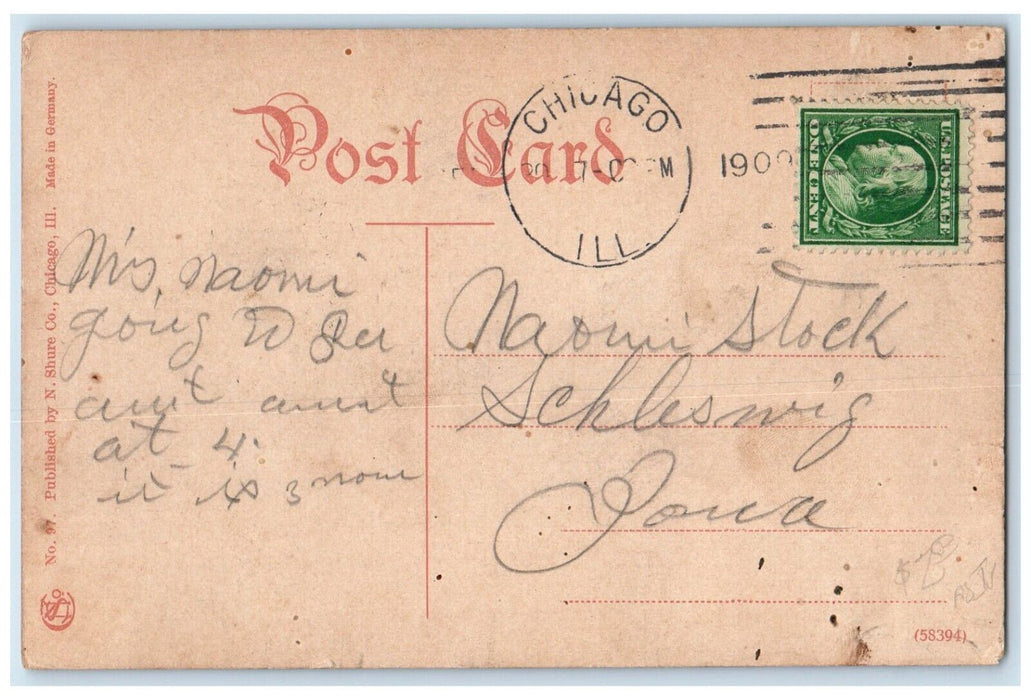 Post Card
CHICAGO
ILL.
1909
U.S. POSTAGE
ONE CENT
No. 97. Published by N. Shure Co., Chicago, Ill. Made in Germany.
Mis, Naomi
going to See
aunt
at 4.
it is 3 now
Naomi Stock
Schleswig
Iowa
(58394)